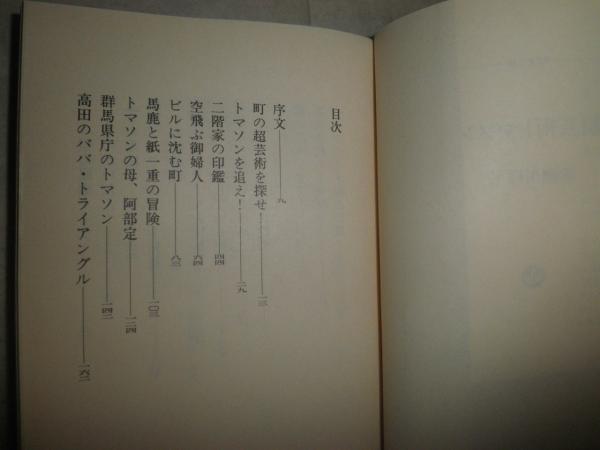 目次
序文――九
町の超芸術を探せ!――一三
トマソンを追え!――二九
二階家の印鑑――四四
空飛ぶ御婦人――六四
ビルに沈む町――八三
馬鹿と紙一重の冒険――一〇三
トマソンの母、阿部定――一二四
群馬県庁のトマソン――一四二
高田のババ・トライアングル――一六三